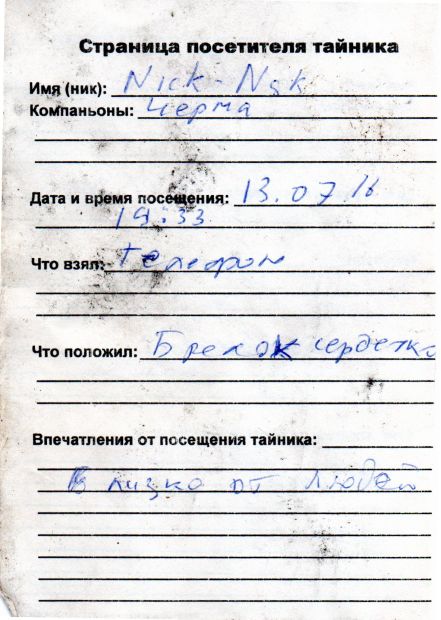 Страница посетителя тайника
Имя (ник): Nick-Nsk
Компаньоны: Черма
Дата и время посещения: 13.07.16
19:33
Что взял: Телефон
Что положил: Брелок сердечко
Впечатления от посещения тайника:
Близко от людей